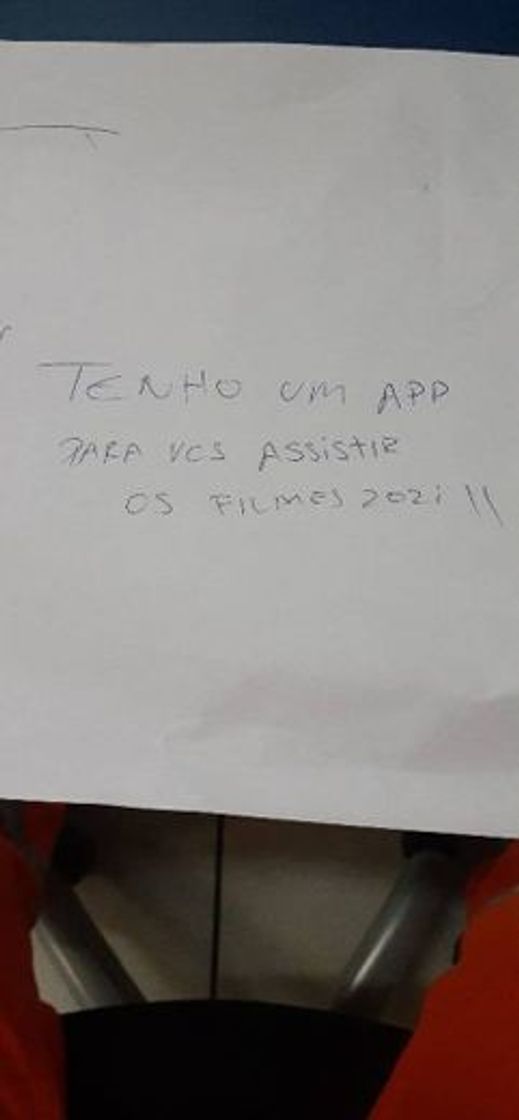 TENHO UM APP
PARA VCS ASSISTIR
OS FILMES 2021 \\